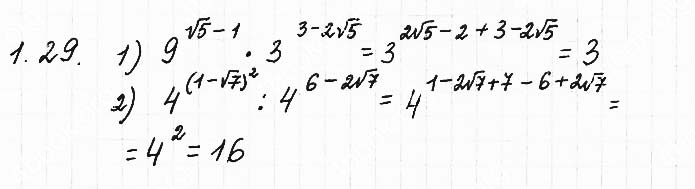 1.29. 1) 9^{√5-1} · 3^{3-2√5} = 3^{2√5-2+3-2√5} = 3
2) 4^{(1-√7)^2} : 4^{6-2√7} = 4^{1-2√7+7-6+2√7} =
= 4^2 = 16